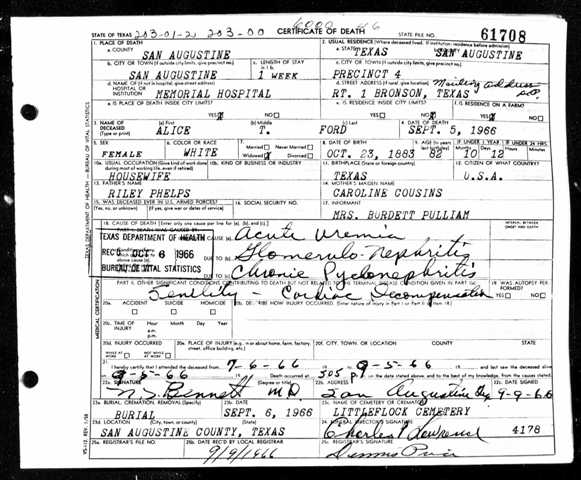 STATE OF TEXAS 203-01-2 203-00 CERTIFICATE OF DEATH STATE FILE NO. 61708
1. PLACE OF DEATH
2. USUAL RESIDENCE (Where deceased lived. If institution: residence before admission)
a. COUNTY SAN AUGUSTINE a. STATE TEXAS b. COUNTY SAN AUGUSTINE
b. CITY OR TOWN (If outside city limits, give precinct no.) c. LENGTH OF STAY c. CITY OR TOWN (If outside city limits, give precinct no.)
SAN AUGUSTINE 1 WEEK PRECINCT 4
d. NAME OF (If not in hospital, give street address) d. STREET ADDRESS (If rural, give location) Mailing address
HOSPITAL OR INSTITUTION MEMORIAL HOSPITAL RT. 1 BRONSON, TEXAS
e. IS PLACE OF DEATH INSIDE CITY LIMITS? YES NO e. IS RESIDENCE INSIDE CITY LIMITS? YES NO f. IS RESIDENCE ON A FARM? YES NO
3. NAME OF DECEASED (Type or print) (a) First (b) Middle (c) Last 4. DATE OF DEATH
ALICE T. FORD SEPT. 5, 1966
5. SEX 6. COLOR OR RACE 7. Married Never Married Widowed Divorced 8. DATE OF BIRTH 9. AGE (In years last birthday) IF UNDER 1 YEAR IF UNDER 24 HRS.
FEMALE WHITE OCT. 23, 1883 82 10 12
10a. USUAL OCCUPATION (Give kind of work done during most of working life, even if retired) 10b. KIND OF BUSINESS OR INDUSTRY 11. BIRTHPLACE (State or foreign country) 12. CITIZEN OF WHAT COUNTRY?
HOUSEWIFE TEXAS U.S.A.
13. FATHER'S NAME 14. MOTHER'S MAIDEN NAME
RILEY PHELPS CAROLINE COUSINS
15. WAS DECEASED EVER IN U.S. ARMED FORCES? 16. SOCIAL SECURITY NO. 17. INFORMANT
(Yes, no, or unknown) (If yes, give war or dates of service) MRS. BURDETT PULLIAM
18. CAUSE OF DEATH (Enter only one cause per line for (a), (b), and (c).) INTERVAL BETWEEN ONSET AND DEATH
Acute Uremia
TEXAS DEPARTMENT OF HEALTH
DUE TO Glomerulo-Nephritis
REC'D OCT 6 1966
DUE TO Chronic Pyelonephritis
BUREAU OF VITAL STATISTICS
PART II. OTHER SIGNIFICANT CONDITIONS CONTRIBUTING TO DEATH BUT NOT RELATED TO THE TERMINAL DISEASE CONDITION GIVEN IN PART I(a) 19. WAS AUTOPSY PERFORMED?
Senility - Cardiac Decompensation YES NO
20a. ACCIDENT SUICIDE HOMICIDE 20b. DESCRIBE HOW INJURY OCCURRED (Enter nature of injury in Part I or Part II of item 18.)
20c. TIME OF INJURY Hour Month Day Year
a.m.
p.m.
20d. INJURY OCCURRED 20e. PLACE OF INJURY (e.g. in or about home, farm, factory, street, office building, etc.) 20f. CITY, TOWN, OR LOCATION COUNTY STATE
WHILE AT WORK NOT WHILE AT WORK
21. I hereby certify that I attended the deceased from 7-6-66 to 9-5-66 and last saw the deceased alive
on 9-5-66 Death occurred at 305 P. m. on the date stated above, and to the best of my knowledge, from the causes stated.
22a. SIGNATURE (Degree or title) 22b. ADDRESS 22c. DATE SIGNED
Bennett MD San Augustine 9-9-66
23a. BURIAL, CREMATION, REMOVAL (Specify) 23b. DATE 23c. NAME OF CEMETERY OR CREMATORY
BURIAL SEPT. 6, 1966 LITTLEFLOCK CEMETERY
23d. LOCATION (City, town, or county) (State) 24. FUNERAL DIRECTOR'S SIGNATURE
SAN AUGUSTINE COUNTY, TEXAS Charles Lawrence 4178
25a. REGISTRAR'S FILE NO. 25b. DATE REC'D BY LOCAL REGISTRAR 25c. REGISTRAR'S SIGNATURE
9/9/1966
TEXAS DEPARTMENT OF HEALTH - BUREAU OF VITAL STATISTICS
MEDICAL CERTIFICATION
VS-112 REV. 1/58